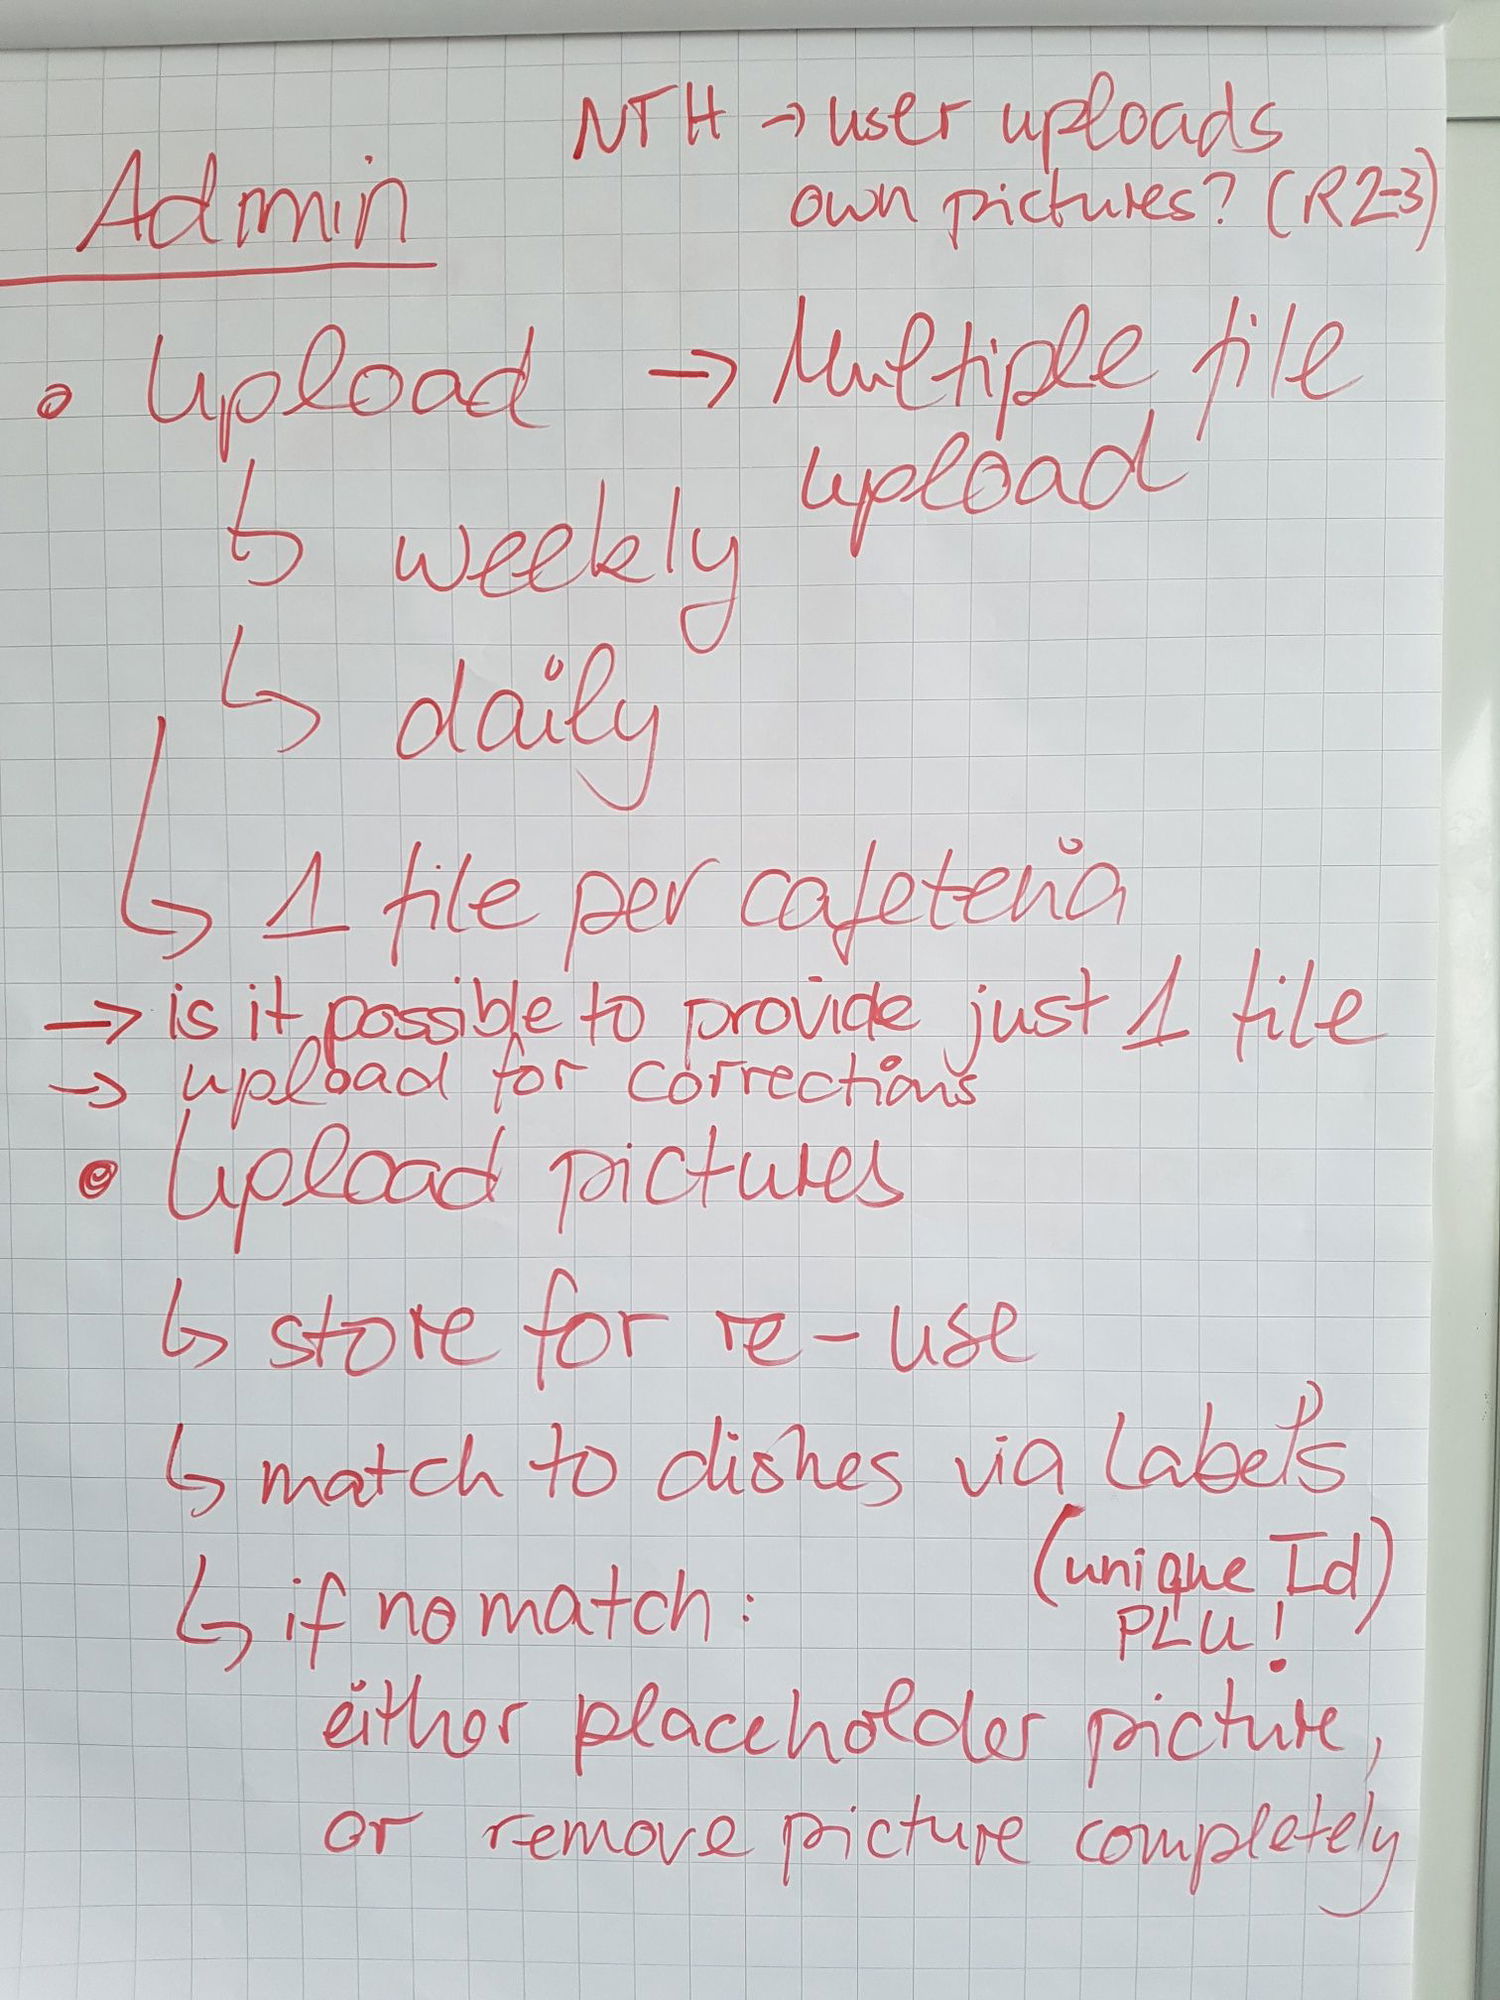 NTH → user uploads
own pictures? (R2-3)
Admin
• Upload → Multiple file
upload
↳ weekly
↳ daily
↳ 1 file per cafeteria
→ is it possible to provide just 1 file
→ upload for corrections
• Upload pictures
↳ store for re-use
↳ match to dishes via Labels
(unique Id)
PLU!
↳ if no match:
either placeholder picture,
or remove picture completely